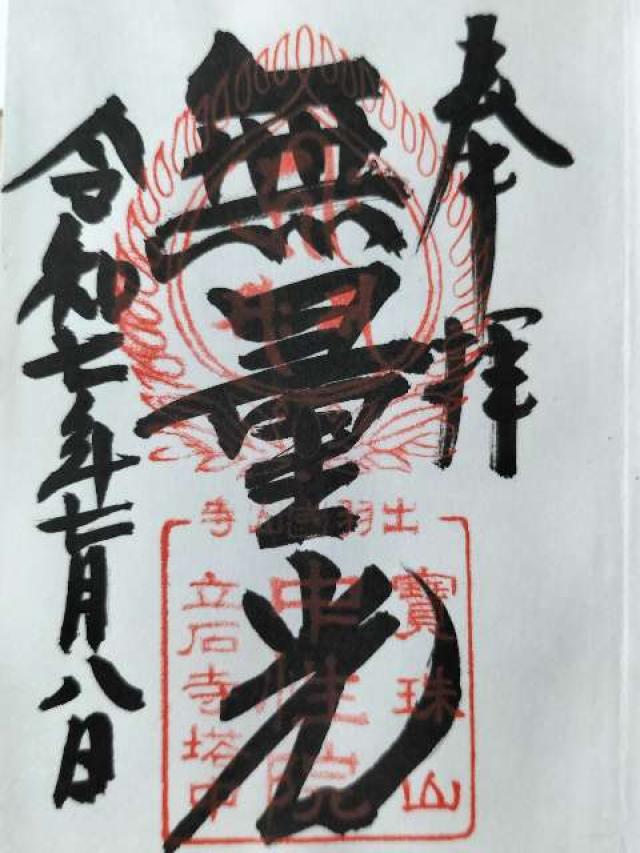 奉拝
無量光
令和七年七月八日
出羽國山寺
寶珠山
中性院
立石寺塔中